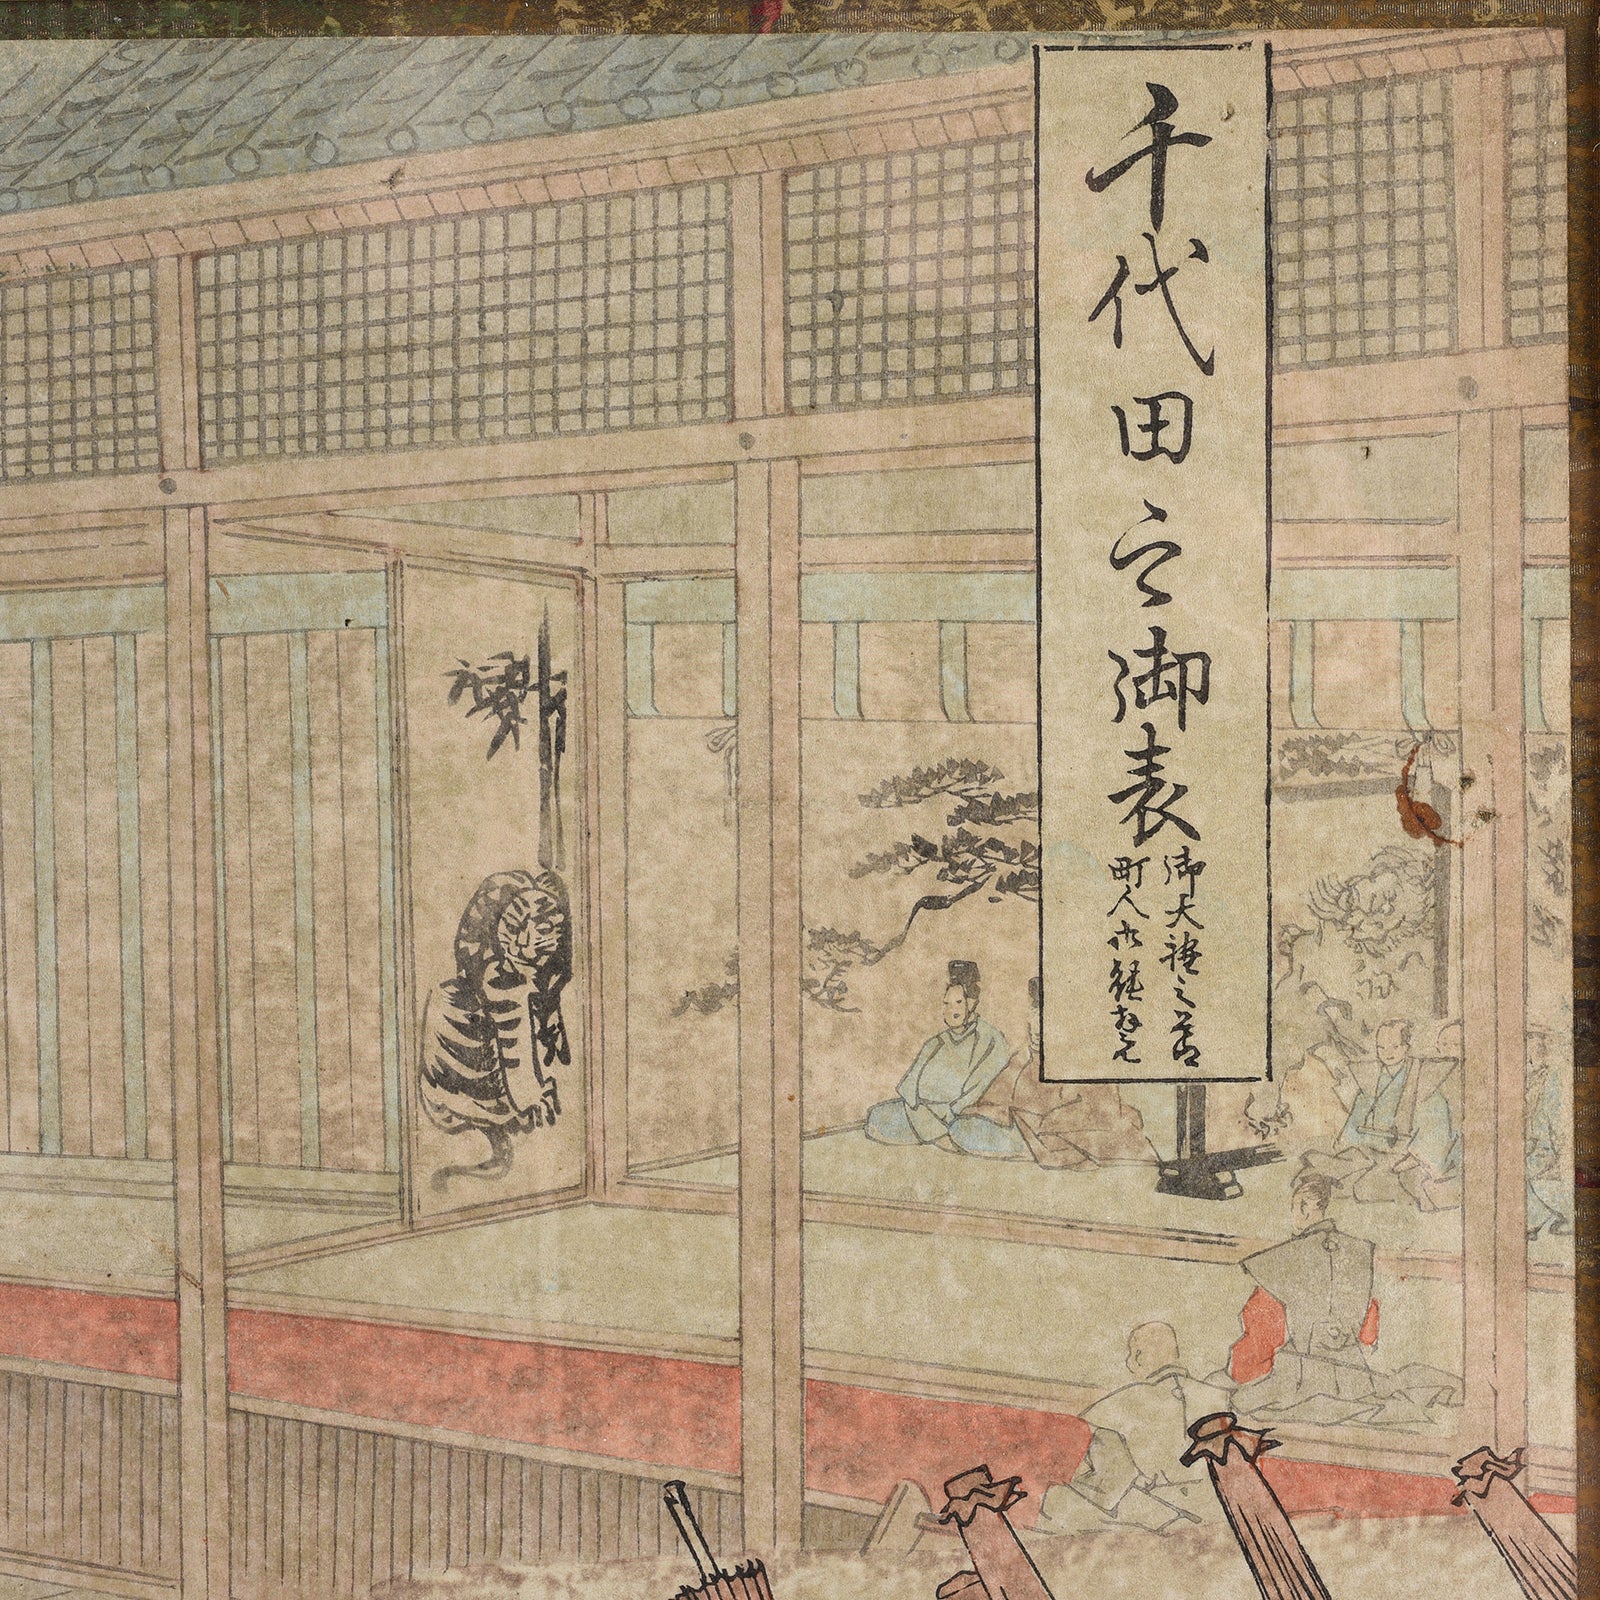 千代田之御表
御大礼之節
町人御能拝見